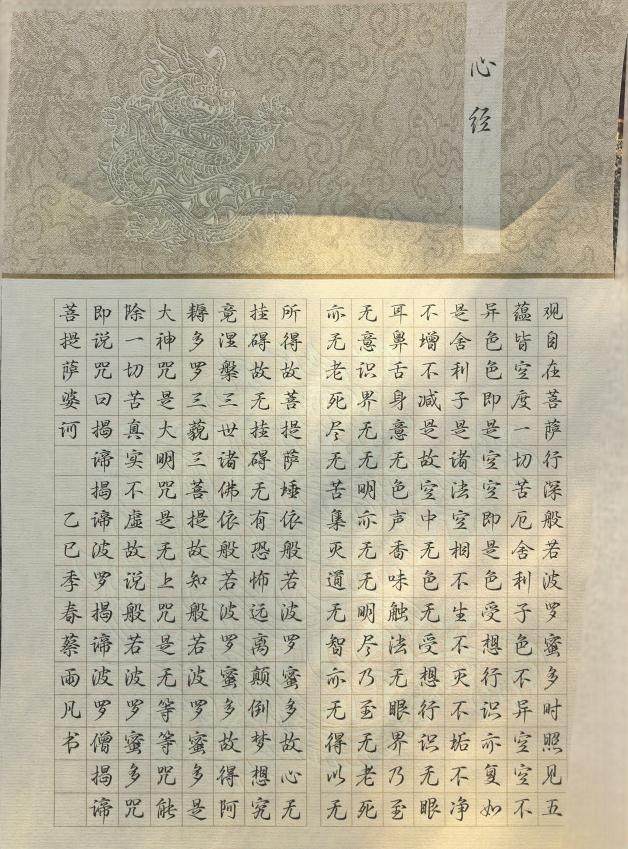 心经
观自在菩萨行深般若波罗蜜多时照见五
蕴皆空度一切苦厄舍利子色不异空空不
异色色即是空空即是色受想行识亦复如
是舍利子是诸法空相不生不灭不垢不净
不增不减是故空中无色无受想行识无眼
耳鼻舌身意无色声香味触法无眼界乃至
无意识界无无明亦无无明尽乃至无老死
亦无老死尽无苦集灭道无智亦无得以无
所得故菩提萨埵依般若波罗蜜多故心无
挂碍故无挂碍无有恐怖远离颠倒梦想究
竟涅槃三世诸佛依般若波罗蜜多故得阿
耨多罗三藐三菩提故知般若波罗蜜多是
大神咒是大明咒是无上咒是无等等咒能
除一切苦真实不虚故说般若波罗蜜多咒
即说咒曰揭谛揭谛波罗揭谛波罗僧揭谛
菩提萨婆诃 乙巳季春蔡雨凡书